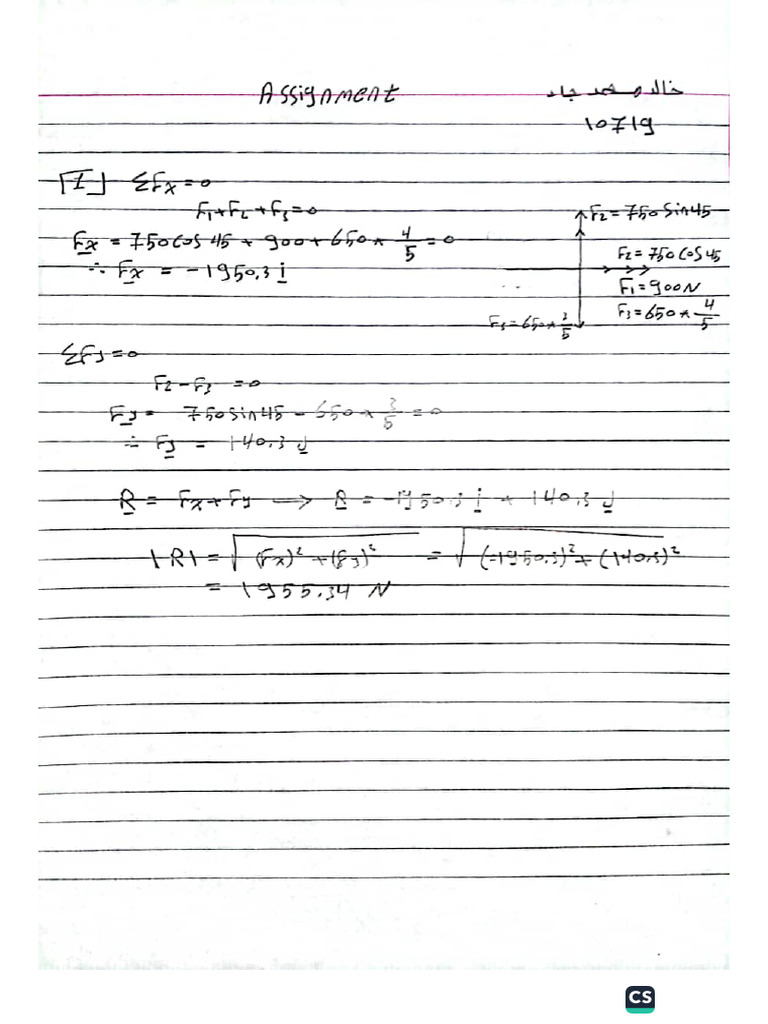 Assignment
خالد محمد جاد
10719
[1] ΣFx=0
F1+F2+F3=0
Fx = 750 cos 45 + 900 + 650 * 4/5 = 0
∴ Fx = -1950.3 i
F2=750 sin45
F2=750 cos 45
F1=900N
F3=650*4/5
F3=650*3/5
ΣFy=0
F2-F3 =0
Fy = 750 sin 45 - 650 * 3/5 = 0
∴ Fy = 140.3 J
R = Fx+Fy → R = -1950.3 i + 140.3 J
|R| = √(Fx)² + (Fy)² = √(-1950.3)² + (140.3)²
= 1955.34 N
CS